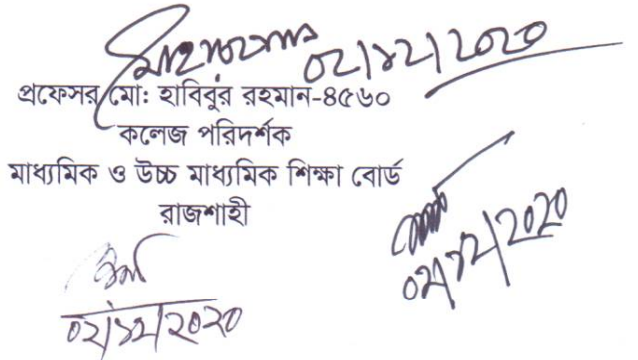 ০২/১২/২০২০
প্রফেসর মো: হাবিবুর রহমান-৪৫৬০
কলেজ পরিদর্শক
মাধ্যমিক ও উচ্চ মাধ্যমিক শিক্ষা বোর্ড
রাজশাহী
০২/১২/২০২০
০২/১২/২০২০